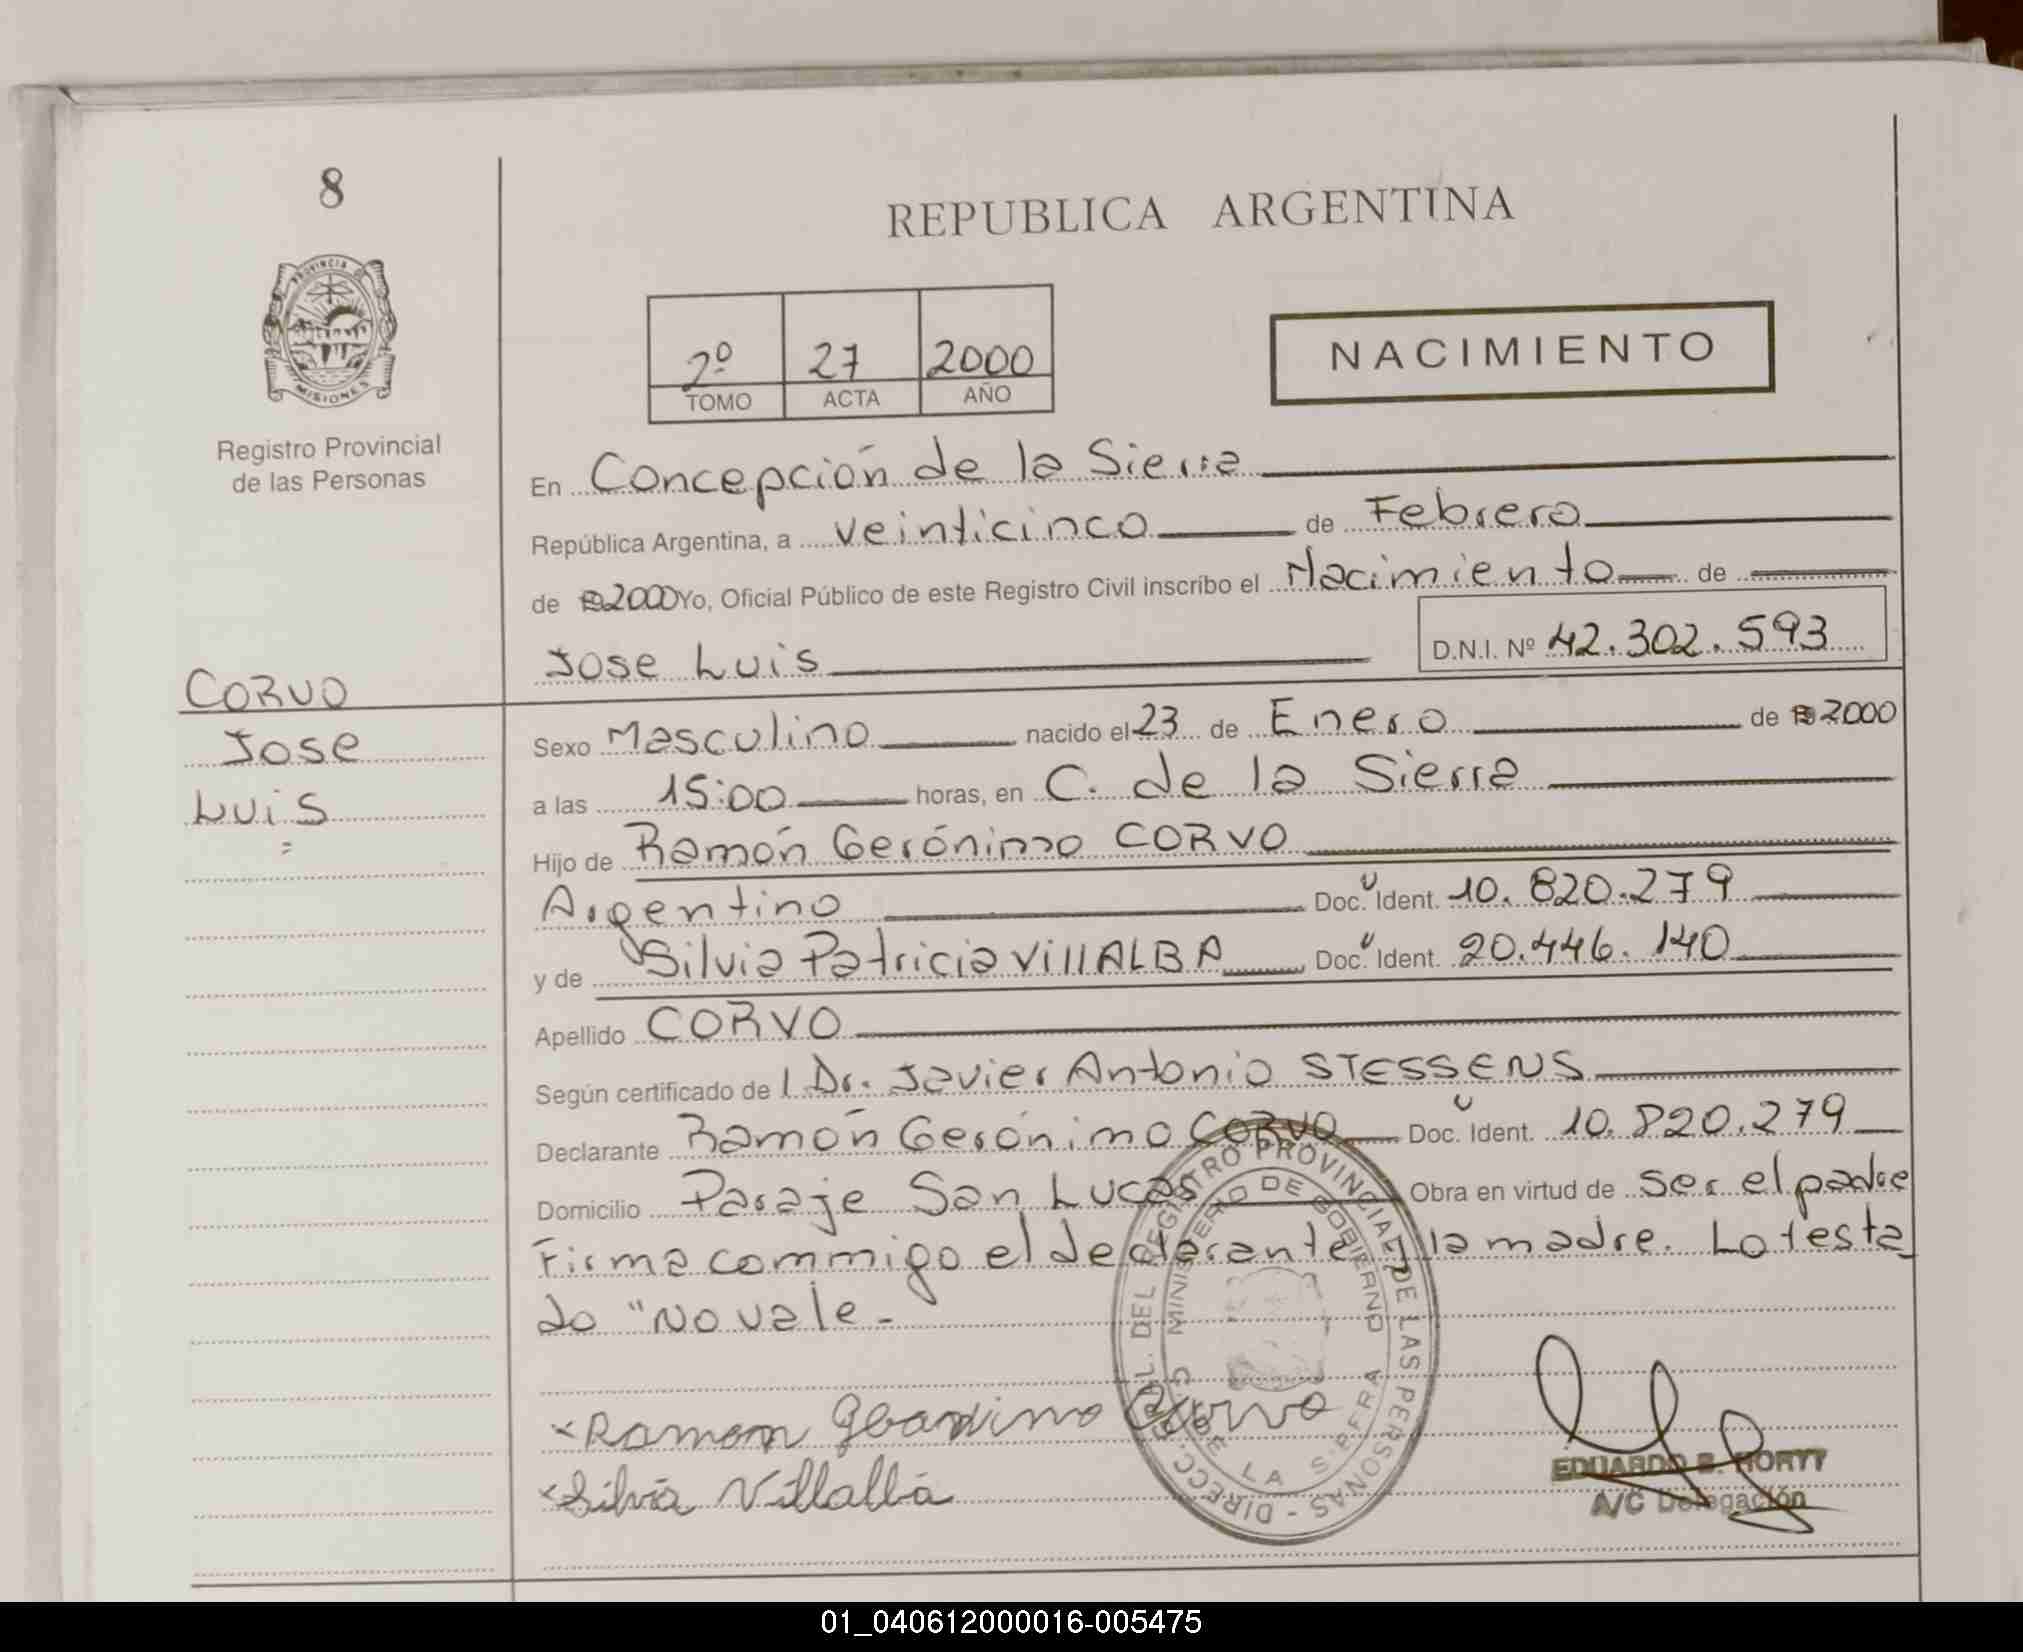 8
REPUBLICA ARGENTINA
PROVINCIA DE
MISIONES
Registro Provincial
de las Personas
2º 27 2000
TOMO ACTA AÑO
NACIMIENTO
En Concepción de la Sierra
República Argentina, a veinticinco de Febrero
de 2000 Yo, Oficial Público de este Registro Civil inscribo el Nacimiento de
Jose Luis D.N.I. Nº 42.302.593
CORVO
Jose
Luis
Sexo Masculino nacido el 23 de Enero de 2000
a las 15:00 horas, en C. de la Sierra
Hijo de Ramón Gerónimo CORVO
Argentino Doc. Ident. 10.820.279
y de Silvia Patricia VillALBA Doc. Ident. 20.446.140
Apellido CORVO
Según certificado de l Dr. Javier Antonio STESSENS
Declarante Ramón Gerónimo CORVO Doc. Ident. 10.820.279
Domicilio Paraje San Lucas Obra en virtud de ser el padre
Firma commigo el declarante y la madre. Lo testa
do "No vale -
DIRECC. GRAL. DEL REGISTRO PROVINCIAL DE LAS PERSONAS -
MINISTERIO DE GOBIERNO
C. DE LA SIERRA
Ramon Corvo
Silvia Villalba
EDUARDO
A/C Delegación
01_040612000016-005475